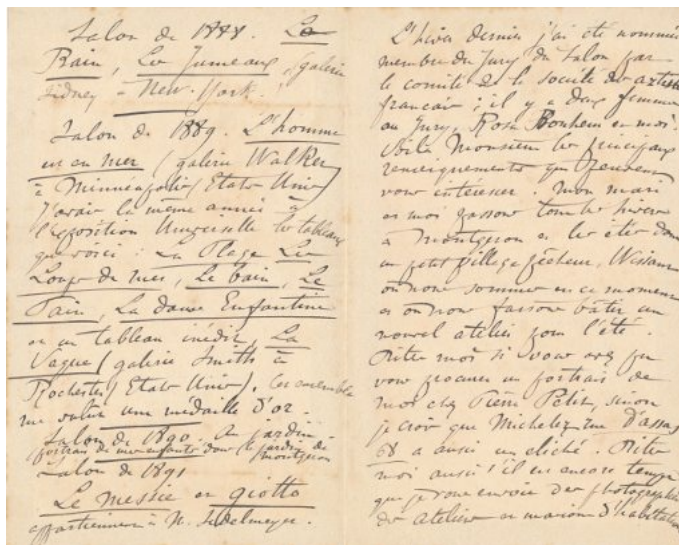 Salon de 1888. Le
Pain, Les Jumeaux, (galerie
Sidney à New-York.
Salon de 1889. L'homme
est en mer (galerie Walker
à Minnéapolis (Etats Unis)
J'avais la même année à
l'exposition Universelle les tableaux
que voici : La Plage Les
Loups de mer, Le bain, Le
Pain, La danse Enfantine
et un tableau inédit, La
Vague (galerie Smith à
Rochester (Etats Unis). Cet ensemble
me valut une médaille d'or.
Salon de 1890. Au jardin
portrait de mes enfants dans le jardin de Montgeron
Salon de 1891
Le Messie et Giotto
appartiennent à M. Sedelmeyer.
L'hiver dernier j'ai été nommée
membre du Jury du Salon par
le comité de la société des artistes
français ; il y a deux femmes
au Jury, Rosa Bonheur et moi.
Voilà Monsieur les principaux
renseignements qui peuvent
vous intéresser. Mon mari
et moi passons tous les hivers
à Montgeron et les étés dans
un petit village pêcheur, Wissant
où nous sommes en ce moment
et où nous faisons bâtir un
nouvel atelier pour l'été.
Dites moi si vous avez pu
vous procurer un portrait de
moi chez Pierre Petit, sinon
je crois que Michelez rue d'Assas
68 a aussi un cliché. Dites
moi aussi s'il est encore temps
que je vous envoie des photographies
des ateliers et maisons d'habitation